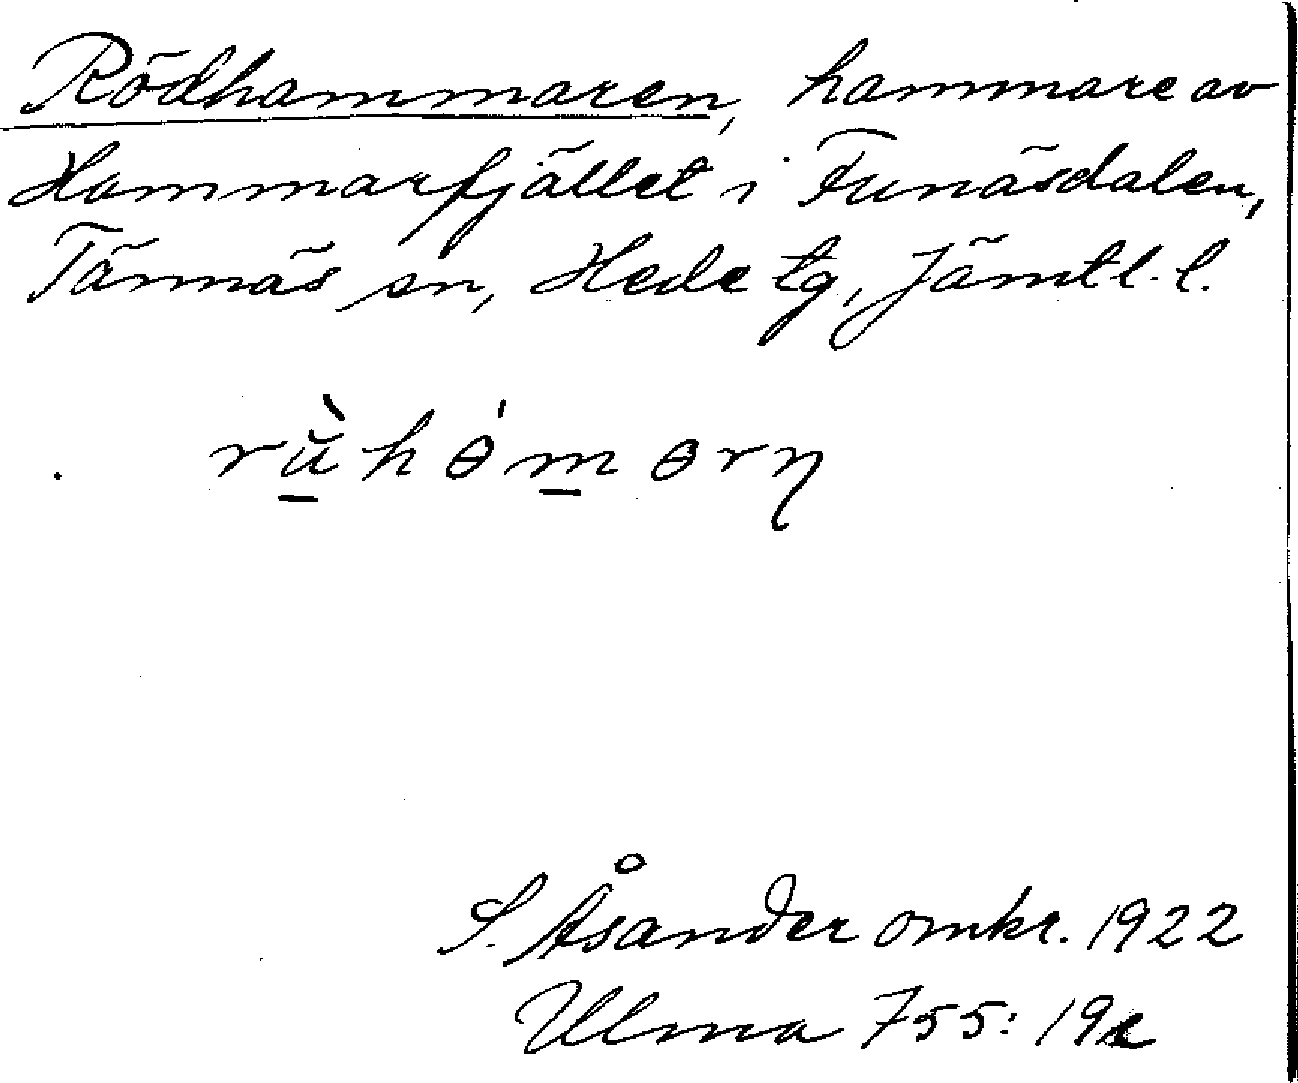 Rödhammaren, hammare av
Hammarfjället i Funäsdalen,
Tännäs sn, Hede tg, Jämtl. l.
rù̌hɵ́mɵrŋ
S. Åsander omkr. 1922
Ulma 755: 19